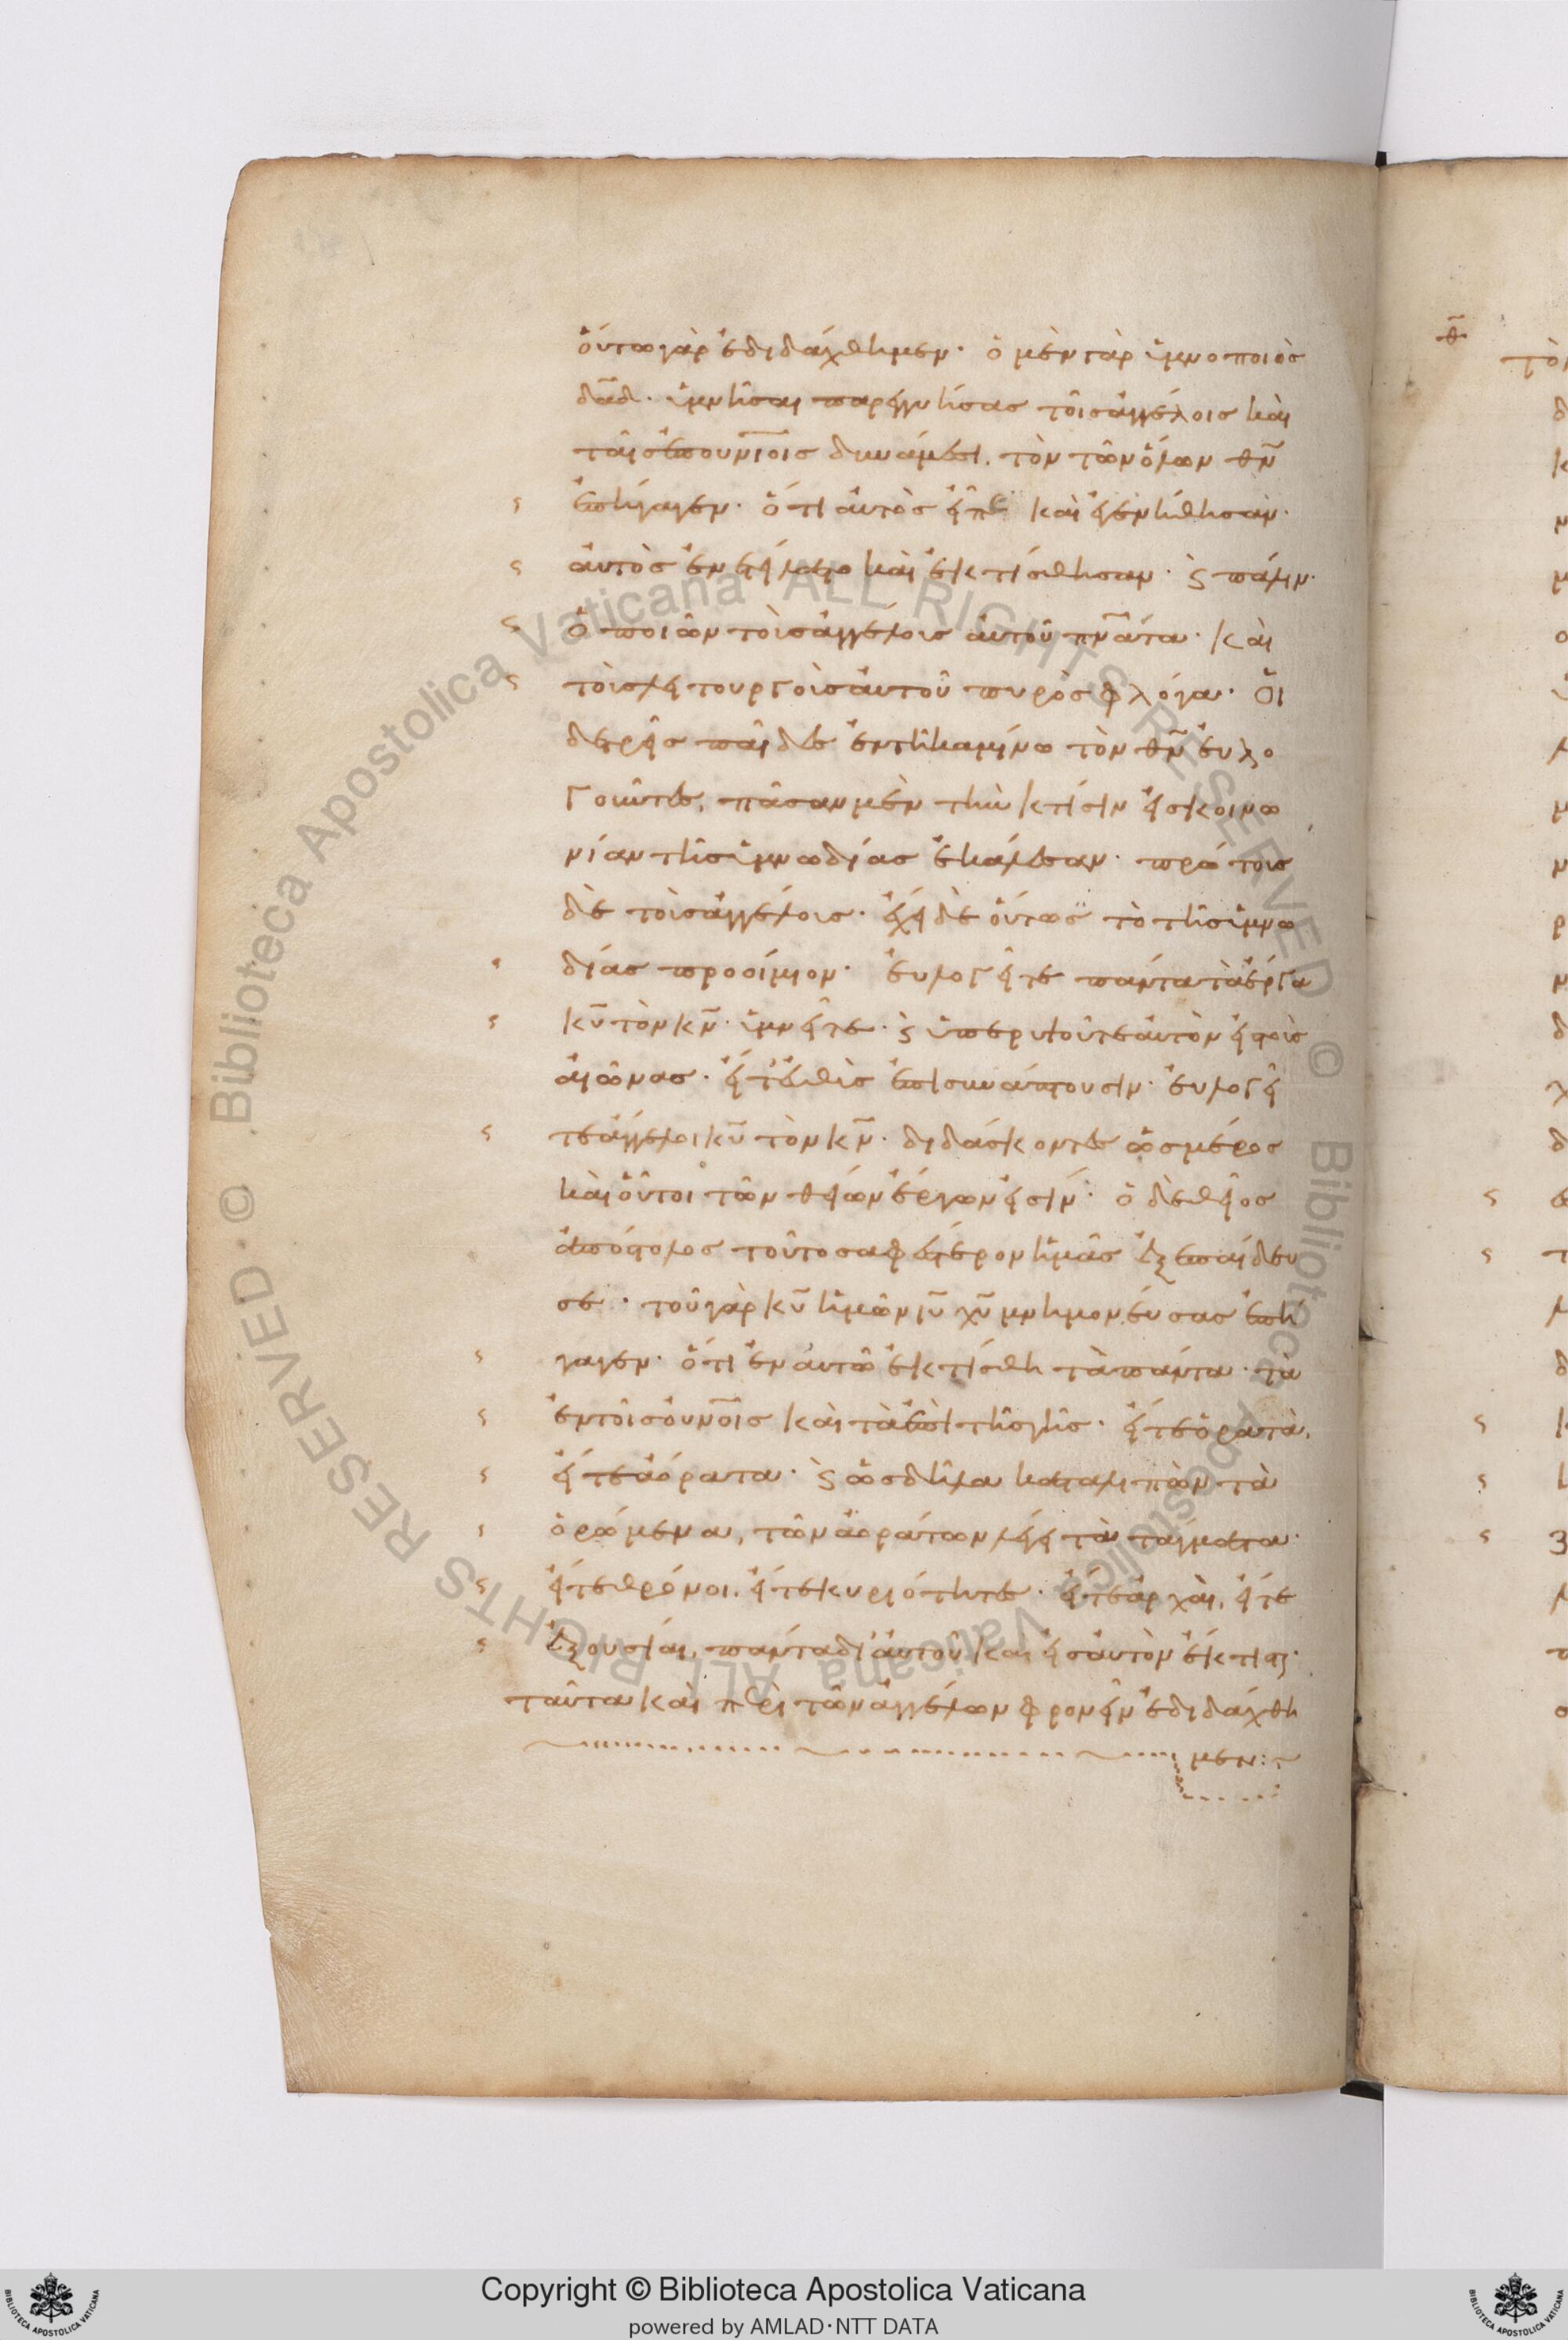 οὕτω γὰρ ἐδιδάχθημεν· ὁ μὲν γὰρ ὑμνοποιὸς
δᾱδ· ὑμνῆσαι παρεγγυήσας τοῖς ἀγγέλοις καὶ
ταῖς ἐπουνίοις δυνάμεσι, τὸν τῶν ὅλων θν̄
ἐπήγαγεν· ὅτι αὐτὸς εἶπε καὶ ἐγενήθησαν·
αὐτὸς ἐνετείλατο καὶ ἐκτίσθησαν· ϛ πάλιν·
ὁ ποιῶν τοὺς ἀγγέλους αὐτοῦ πν̄ατα· καὶ
τοὺς λειτουργοὺς αὐτοῦ πυρὸς φλόγα· Οἱ
δὲ τρεῖς παῖδες ἐν τῆ καμίνω τὸν θν̄ εὐλο
γοῦντες, πᾶσαν μὲν τὴν κτίσιν εἰς κοινω
νίαν τῆς ὑμνωδίας ἐκάλεσαν· πρώτους
δὲ τοὺς ἀγγέλους· ἔχει δὲ οὕτως τὸ τῆς ὑμνω
δίας προοίμιον· εὐλογεῖτε πάντα τὰ ἔργα
κῡ τὸν κν̄· ὑμνεῖτε· ϛ ὑπερυψοῦτε αὐτὸν εἰς τοὺς
αἰῶνας· εἶτ' εὐθὺς ἐπισυνάπτουσιν· εὐλογεῖ
τε ἄγγελοι κῡ τὸν κν̄· διδάσκοντες ὡς μέρος
καὶ οὗτοι τῶν θείων ἔργων εἰσίν· ὁ δὲ θεῖος
ἀπόστολος τοῦτο σαφέστερον ἡμᾶς ἐξεπαίδευ
σε· τοῦ γὰρ κῡ ἡμῶν ιῡ χῡ μνημονεύσας ἐπή
γαγεν· ὅτι ἐν αὐτῶ ἐκτίσθη τὰ πάντα· τὰ
ἐν τοῖς οὐνοῖς καὶ τὰ ἐπὶ τῆς γῆς· εἴτε ὁρατὰ,
εἴτε ἀόρατα· ϛ ὡς δῆλα καταλιπὼν τὰ
ὁρώμενα, τῶν ἀοράτων λέγει τὰ τάγματα·
εἴτε θρόνοι, εἴτε κυριότητες· εἴτε ἀρχαὶ, εἴτε
ἐξουσίαι, πάντα δι' αὐτοῦ καὶ εἰς αὐτὸν ἔκτισται·
ταῦτα καὶ περὶ τῶν ἀγγέλων φρονεῖν ἐδιδάχθη
μεν:~
Copyright © Biblioteca Apostolica Vaticana
powered by AMLAD·NTT DATA